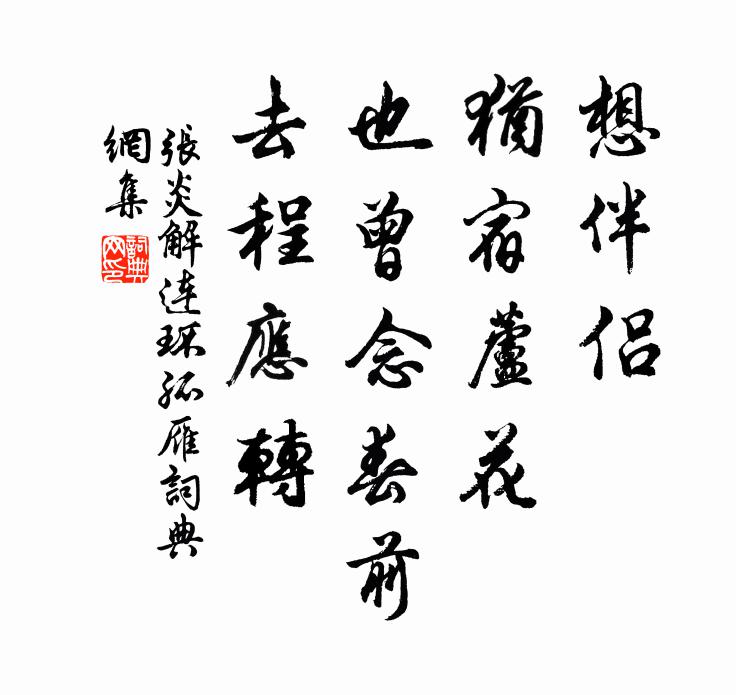 想伴侶
猶宿蘆花
也曾念春前
去程應轉
張炎解連环孤雁詞典
網集
詞典
网印